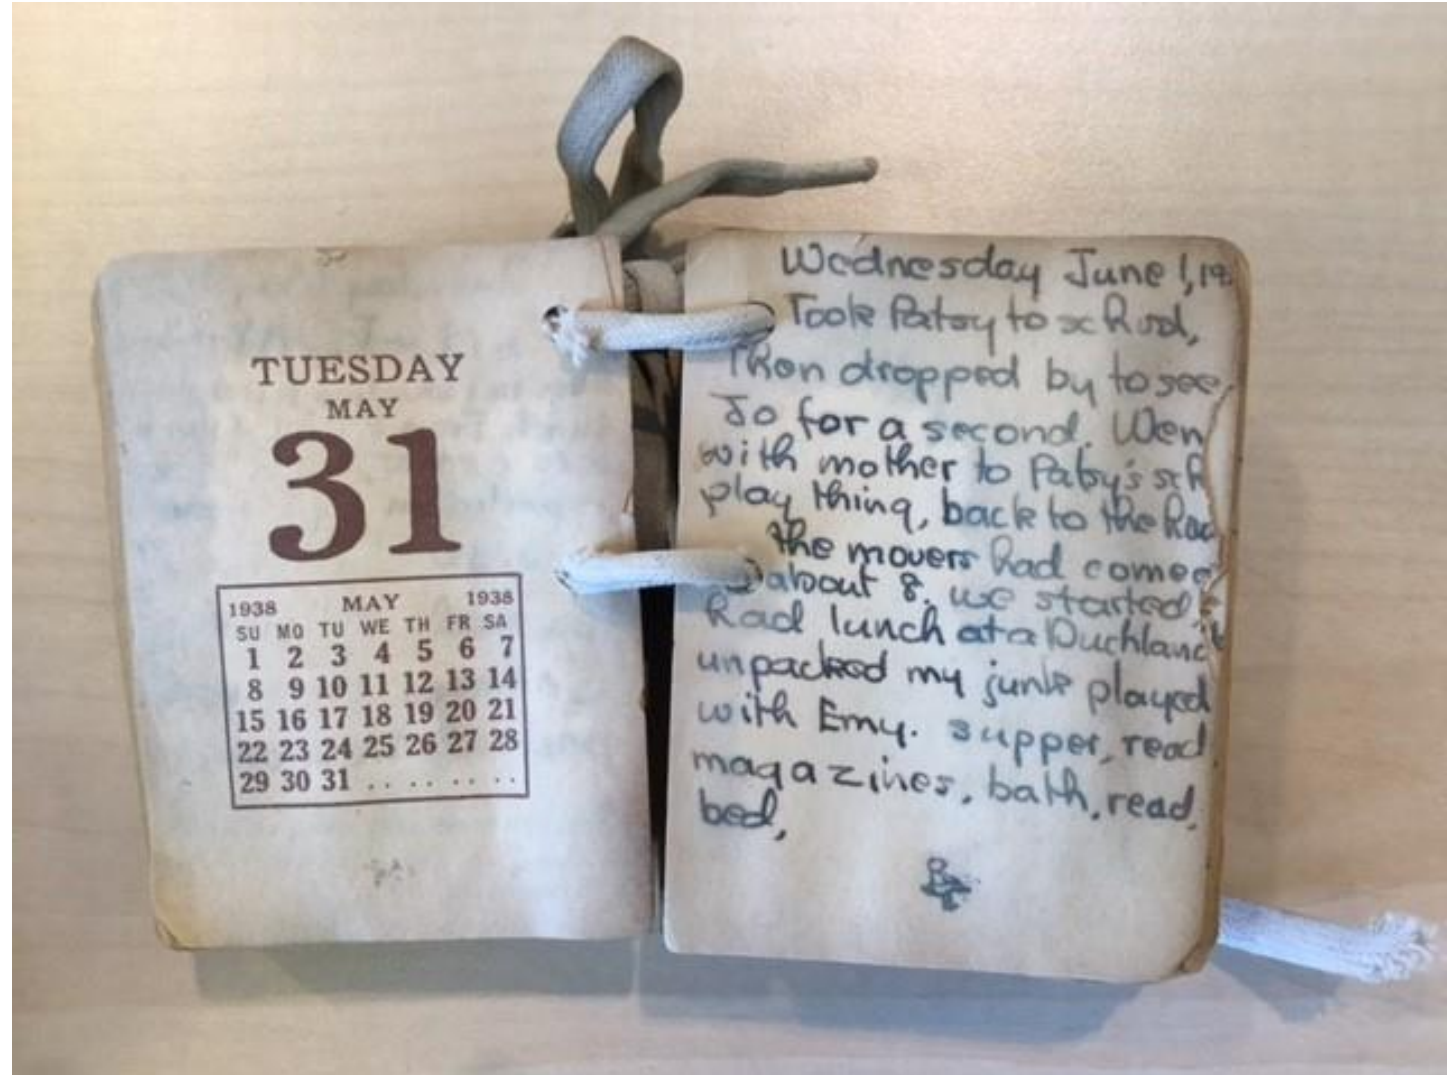 TUESDAY
MAY
31
1938 MAY 1938
SU MO TU WE TH FR SA
1 2 3 4 5 6 7
8 9 10 11 12 13 14
15 16 17 18 19 20 21
22 23 24 25 26 27 28
29 30 31 . . . . . . . .
Wednesday June 1, 19
Took Patsy to school,
Then dropped by to see
Jo for a second. Wen
with mother to Patsy's sch
play thing, back to the hou
the movers had come
about 8. we started,
had lunch at a Duchland
unpacked my junk played
with Emy. supper, read
magazines, bath, read,
bed,